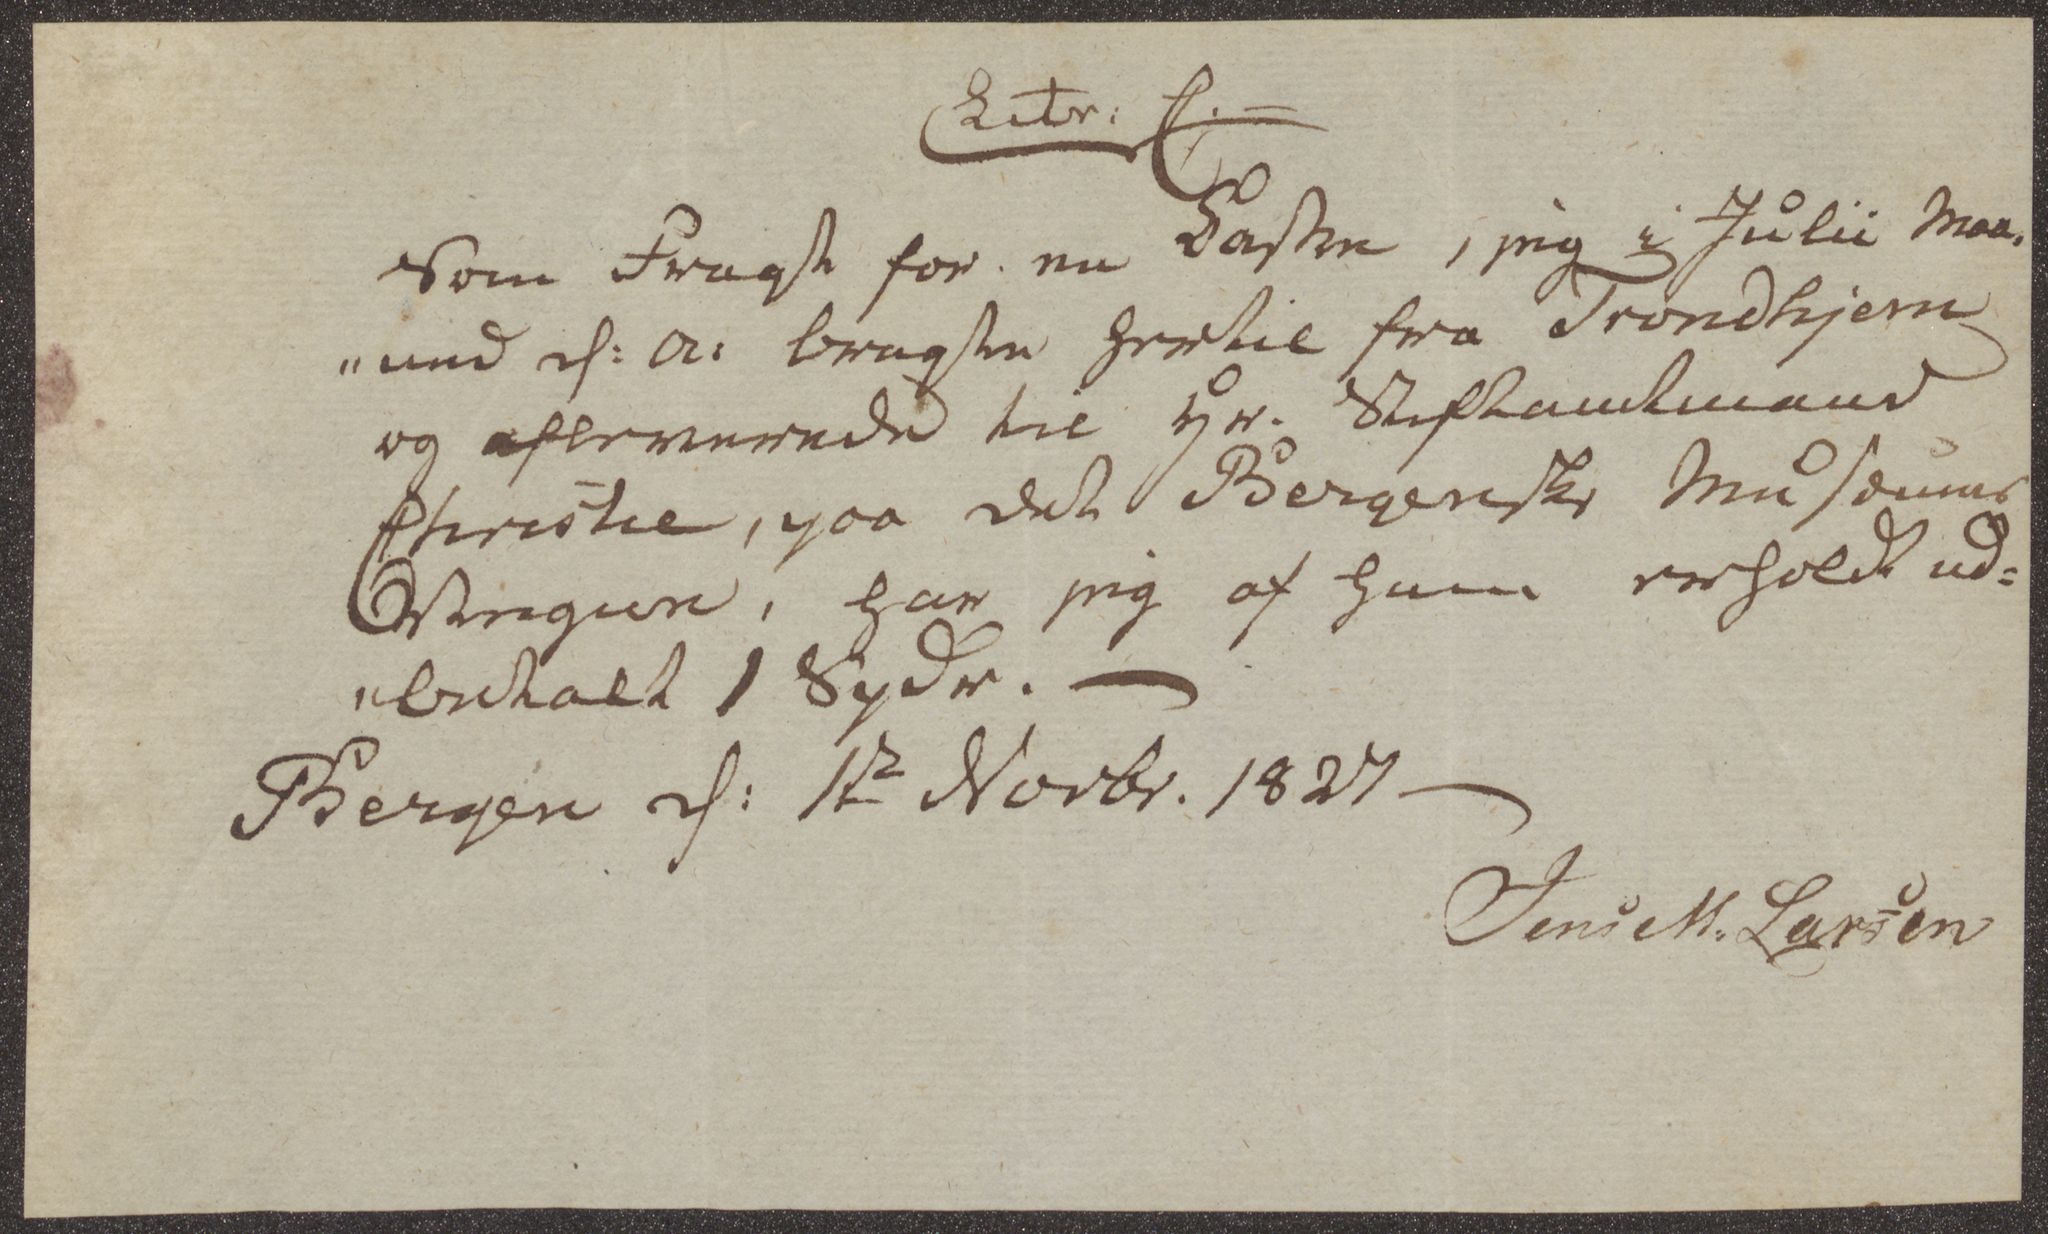 Litr: C.=
Som Fragt for en Kasse, jeg i Julii Maa-
"ned d: A: bragte hertil fra Trondhjem
og afleverede til Hr. Stiftamtmand
Christie, paa det Bergenske Museums
Vegne, har jeg af ham erholdt ud=
"betalt 1 Spdr. —
Bergen d: 1te Novbr. 1827 —
Jens M. Larsen